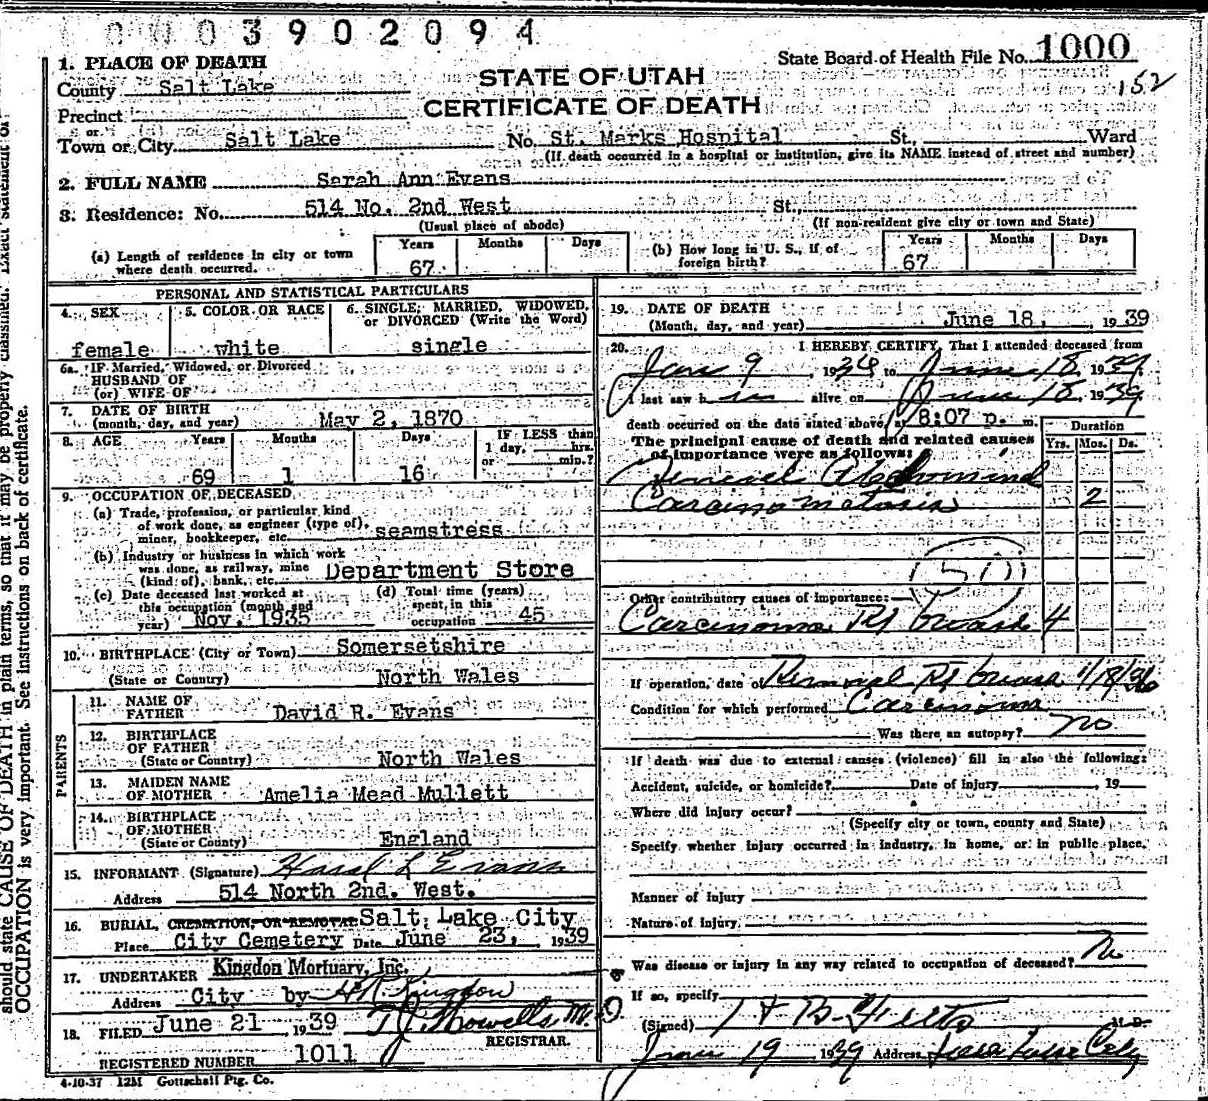 0003902094
State Board of Health File No. 1000
152
1. PLACE OF DEATH
STATE OF UTAH
County Salt Lake
CERTIFICATE OF DEATH
Precinct
or
Town or City Salt Lake No. St. Marks Hospital St., Ward
(If death occurred in a hospital or institution, give its NAME instead of street and number)
2. FULL NAME Sarah Ann Evans
3. Residence: No. 514 No. 2nd West St.,
(Usual place of abode) (If non-resident give city or town and State)
(a) Length of residence in city or town where death occurred. Years 67 Months Days
(b) How long in U. S., if of foreign birth? Years 67 Months Days
PERSONAL AND STATISTICAL PARTICULARS
4. SEX female
5. COLOR OR RACE white
6. SINGLE, MARRIED, WIDOWED, or DIVORCED (Write the Word) single
6a. IF Married, Widowed, or Divorced
HUSBAND OF
(or) WIFE OF
7. DATE OF BIRTH
(month, day, and year) May 2, 1870
8. AGE Years 69 Months 1 Days 16 IF LESS than 1 day, hrs. or min.?
9. OCCUPATION OF DECEASED
(a) Trade, profession, or particular kind
of work done, as engineer (type of),
miner, bookkeeper, etc. seamstress
(b) Industry or business in which work
was done, as railway, mine
(kind of), bank, etc. Department Store
(c) Date deceased last worked at
this occupation (month and
year) Nov. 1935
(d) Total time (years)
spent in this
occupation 45
10. BIRTHPLACE (City or Town) Somersetshire
(State or Country) North Wales
PARENTS
11. NAME OF
FATHER David R. Evans
12. BIRTHPLACE
OF FATHER
(State or Country) North Wales
13. MAIDEN NAME
OF MOTHER Amelia Mead Mullett
14. BIRTHPLACE
OF MOTHER
(State or Country) England
15. INFORMANT (Signature) L Evans
Address 514 North 2nd. West.
16. BURIAL, CREMATION, OR REMOVAL Salt Lake City
Place City Cemetery Date June 23, 1939
17. UNDERTAKER Kingdon Mortuary, Inc.
Address City by Kingdon
18. FILED June 21 1939 T J Howells M.D.
REGISTRAR.
REGISTERED NUMBER 1011
4-10-37 12M Gottschall Ptg. Co.
19. DATE OF DEATH
(Month, day, and year) June 18, 1939
20. I HEREBY CERTIFY, That I attended deceased from
Jan 9 1936 to June 18, 1939
I last saw her alive on June 18, 1939
death occurred on the date stated above, at 8:07 p. m.
The principal cause of death and related causes
of importance were as follows:
Duration
Yrs. Mos. Ds.
General Abdominal
Carcinomatosis 2
50
Other contributory causes of importance:
Carcinoma Rt breast 4
If operation, date of Removal Rt breast 1/18/36
Condition for which performed Carcinoma
Was there an autopsy? no
If death was due to external causes (violence) fill in also the following:
Accident, suicide, or homicide? Date of injury , 19
Where did injury occur?
(Specify city or town, county and State)
Specify whether injury occurred in industry, in home, or in public place.
Manner of injury
Nature of injury
Was disease or injury in any way related to occupation of deceased? No
If so, specify
(Signed) M.D.
June 19 1939 Address Salt Lake City
should state CAUSE OF DEATH in plain terms, so that it may be properly classified. Exact statement of
OCCUPATION is very important. See instructions on back of certificate.